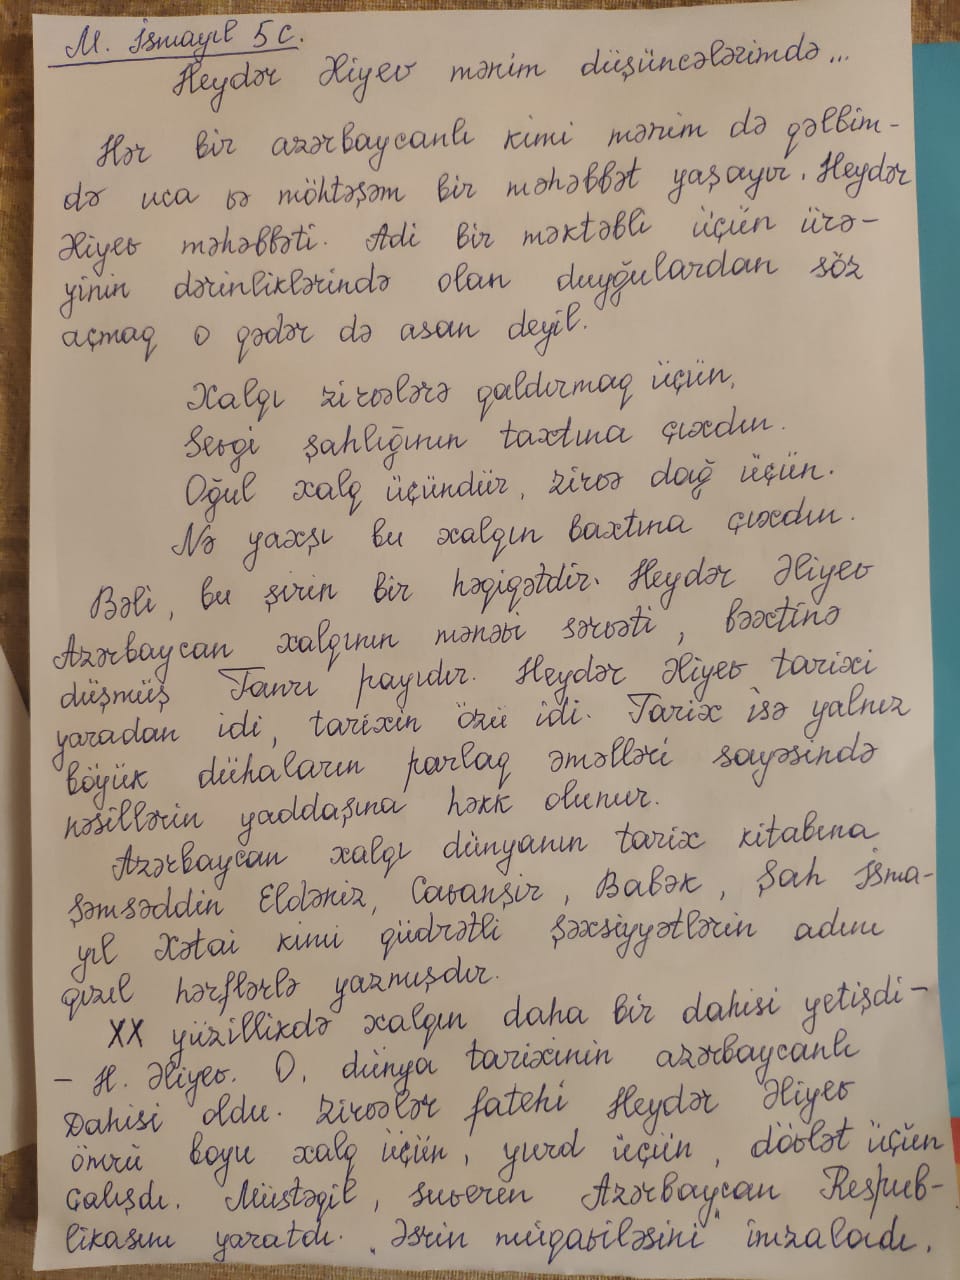 M. İsmayıl 5 c.
Heydər Əliyev mənim düşüncələrimdə...
Hər bir azərbaycanlı kimi mənim də qəlbim-
də uca və möhtəşəm bir məhəbbət yaşayır. Heydər
Əliyev məhəbbəti. Adi bir məktəbli üçün ürə-
yinin dərinliklərində olan duyğulardan söz
açmaq o qədər də asan deyil.
Xalqı zirvələrə qaldırmaq üçün,
Sevgi şahlığının taxtına çıxdın.
Oğul xalq üçündür, zirvə dağ üçün.
Nə yaxşı bu xalqın baxtına çıxdın.
Bəli, bu şirin bir həqiqətdir. Heydər Əliyev
Azərbaycan xalqının mənəvi sərvəti, bəxtinə
düşmüş Tanrı payıdır. Heydər Əliyev tarixi
yaradan idi, tarixin özü idi. Tarix isə yalnız
böyük dühaların parlaq əməlləri sayəsində
nəsillərin yaddaşına həkk olunur.
Azərbaycan xalqı dünyanın tarix kitabına
Şəmsəddin Eldəniz, Cavanşir, Babək, Şah İsma-
yıl Xətai kimi qüdrətli şəxsiyyətlərin adını
qızıl hərflərlə yazmışdır.
XX yüzillikdə xalqın daha bir dahisi yetişdi -
- H. Əliyev. O, dünya tarixinin azərbaycanlı
Dahisi oldu. Zirvələr fatehi Heydər Əliyev
ömrü boyu xalq üçün, yurd üçün, dövlət üçün
çalışdı. Müstəqil, suveren Azərbaycan Respub-
likasını yaratdı. "Əsrin müqaviləsini" imzaladı.